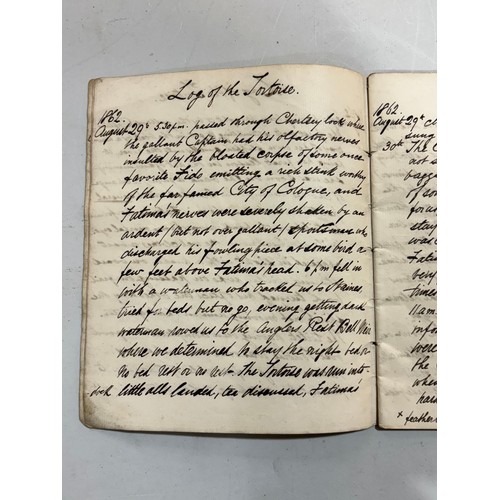 Log of the Tortoise.
1862.
August 29th 5.30 pm. passed through Chertsey lock where
the gallant Captain had his olfactory nerves
insulted by the bloated corpse of some once
favorite Fido emitting a rich stink worthy
of the farfamed City of Cologne, and
Fatima's nerves were severely shaken by an
ardent (but not over gallant) sportsman who
discharged his fowling piece at some bird a
few feet above Fatima's head. 6 pm fell in
with a waterman who tracked us to Staines
tried for beds but no go, evening getting dark
waterman rowed us to the Anglers Rest Bell Weir
where we determined to stay the night bed or
no bed rest or no rest. The Tortoise was run into
dock little alls landed, tea discussed, Fatima's
1862.
August 29th
sung
30th The C
not s
bagga
of ro
focus
stay
was
Fatim
beny
times
11 am
infor
were
the
when
har
x
feather